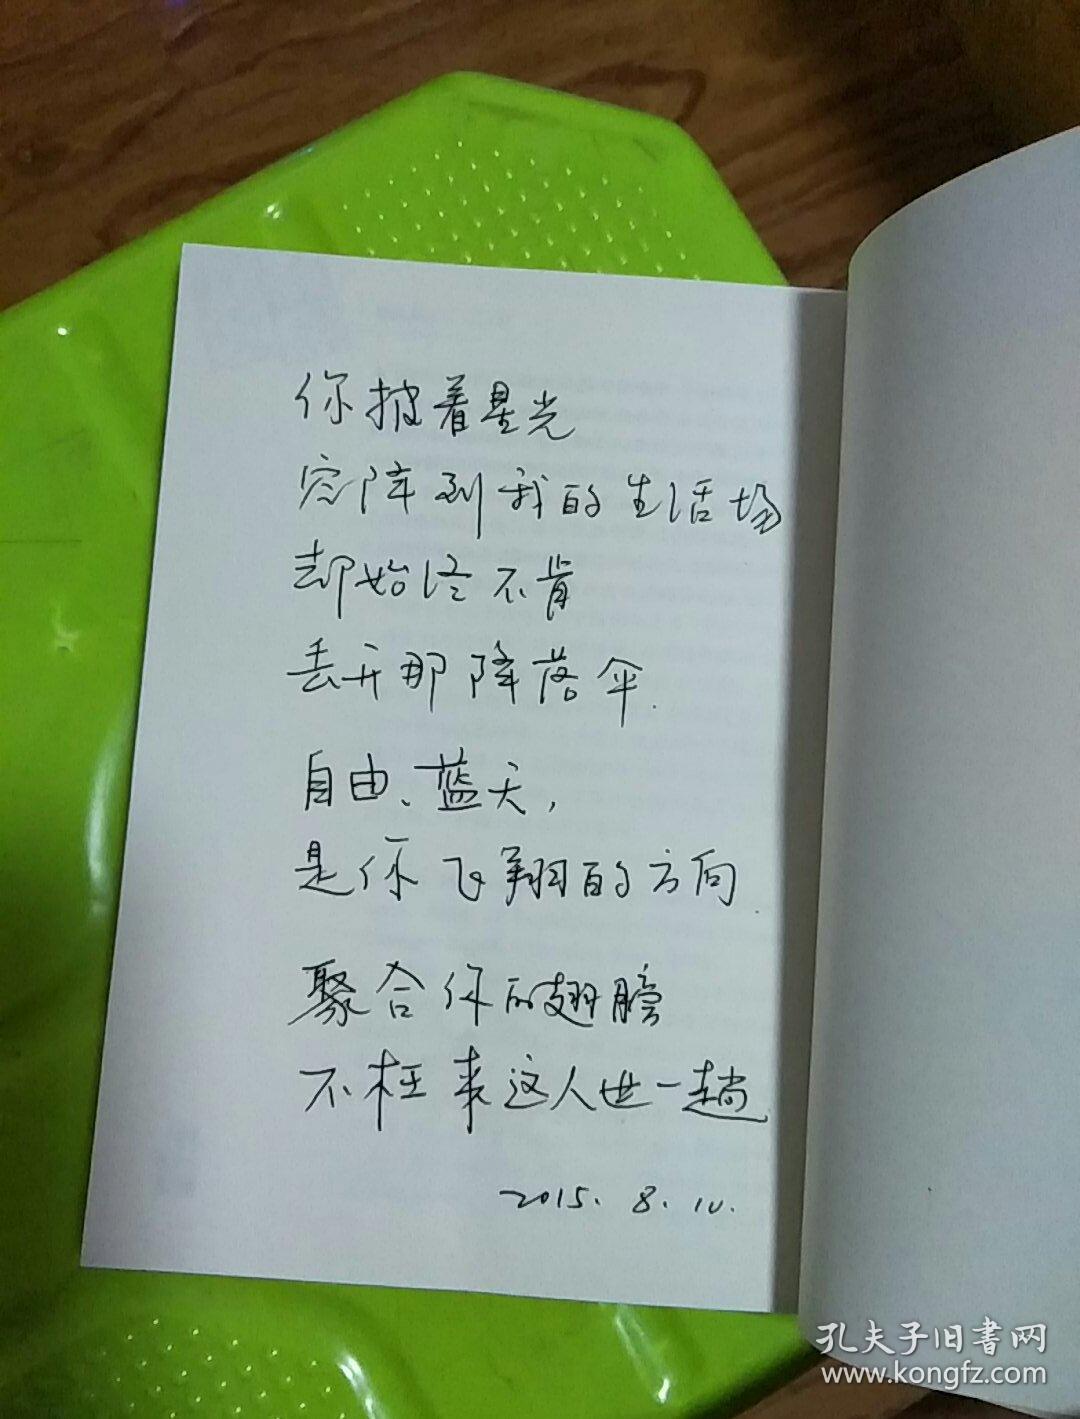 你披着星光
空降到我的生活场
却始终不肯
丢开那降落伞.
自由、蓝天,
是你飞翔的方向
聚合你的翅膀
不枉来这人世一趟
2015. 8. 10.
孔夫子旧書网
www.kongfz.com